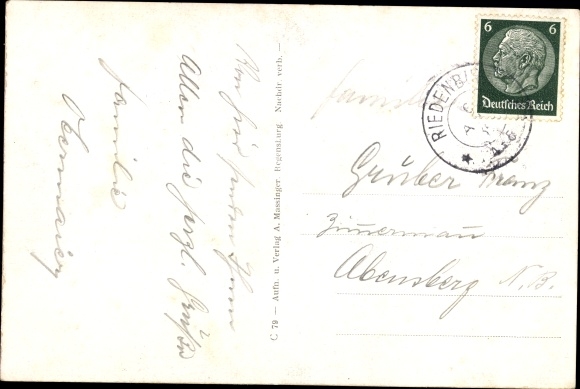 Allen die herzl. Grüße
Familie
Obermaier
C 79 — Aufn. u. Verlag A. Massinger, Regensburg. Nachdr. verb. —
6 6
Deutsches Reich
RIEDENBURG
Familie
Gruber Franz
Zimmermann
Abensberg N.B.